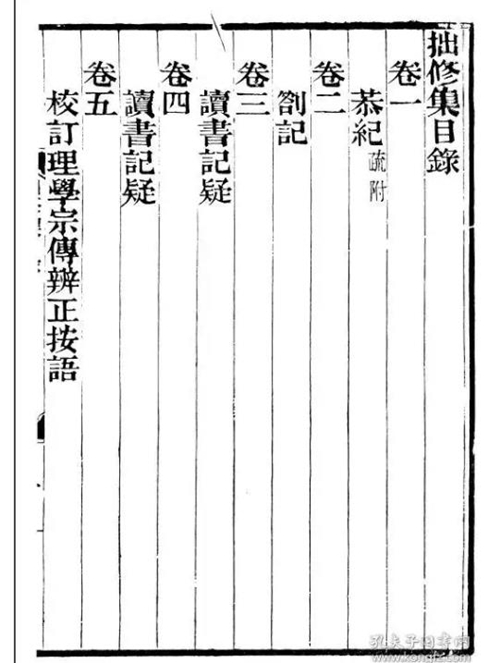 拙修集目錄
卷一
恭紀 疏附
卷二
劄記
卷三
讀書記疑
卷四
讀書記疑
卷五
校訂理學宗傳辨正按語
孔夫子旧书网
www.kongfz.com